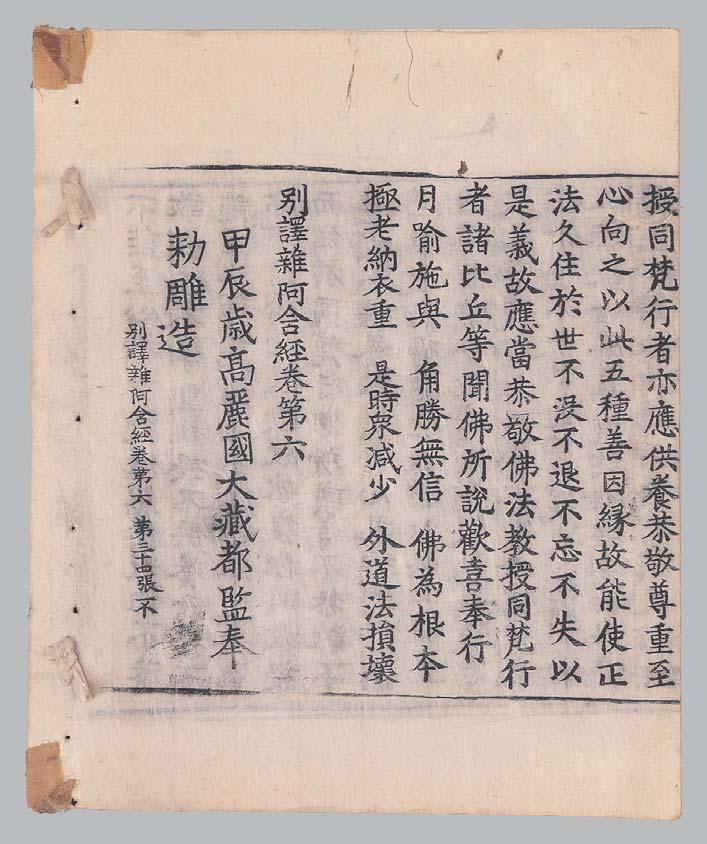 授同梵行者亦應供養恭敬尊重至
心向之以此五種善因縁故能使正
法久住於世不没不退不忘不失以
是義故應當恭敬佛法教授同梵行
者諸比丘等聞佛所說歡喜奉行
月喻施與　角勝無信　佛為根本
極老納衣重　是時衆减少　外道法損壞
別譯雜阿含經卷第六
甲辰歳高麗國大藏都監奉
勑雕造
別譯雜阿含經卷第六　第三十四張　不